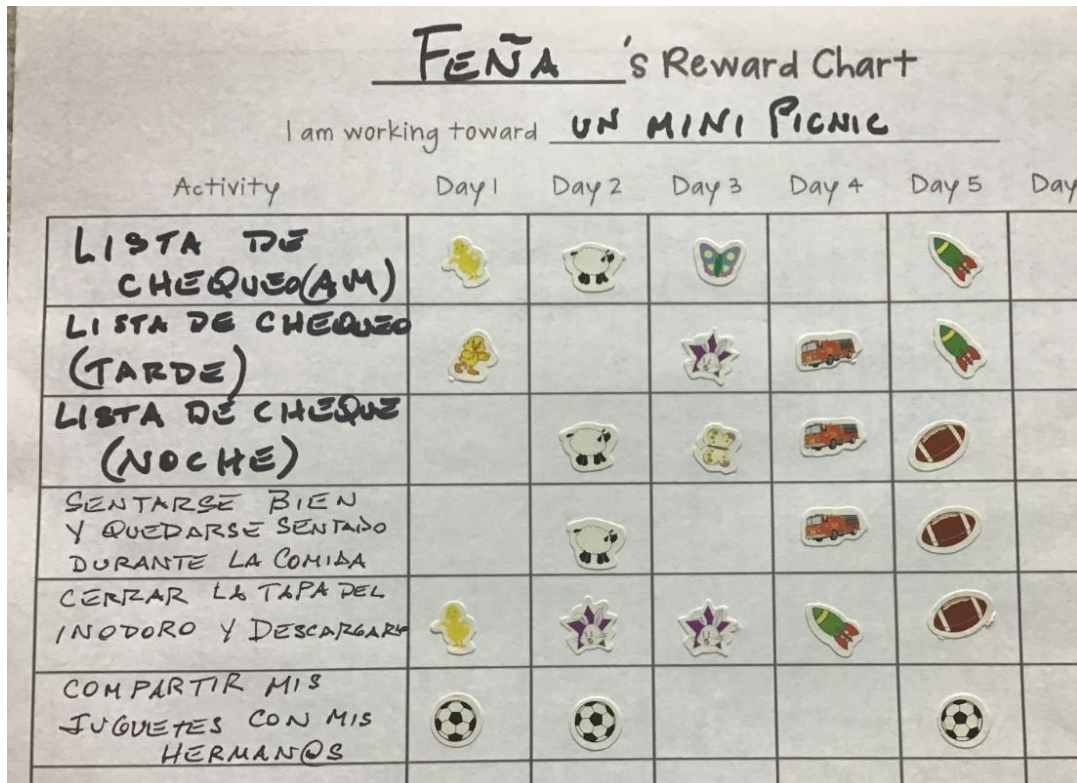 FEÑA 's Reward Chart
I am working toward UN MINI PICNIC
Activity Day 1 Day 2 Day 3 Day 4 Day 5 Day
LISTA DE
CHEQUEO(AM)
LISTA DE CHEQUEO
(TARDE)
LISTA DE CHEQUE
(NOCHE)
SENTARSE BIEN
Y QUEDARSE SENTADO
DURANTE LA COMIDA
CERRAR LA TAPA DEL
INODORO Y DESCARGARLO
COMPARTIR MIS
JUGUETES CON MIS
HERMAN@S